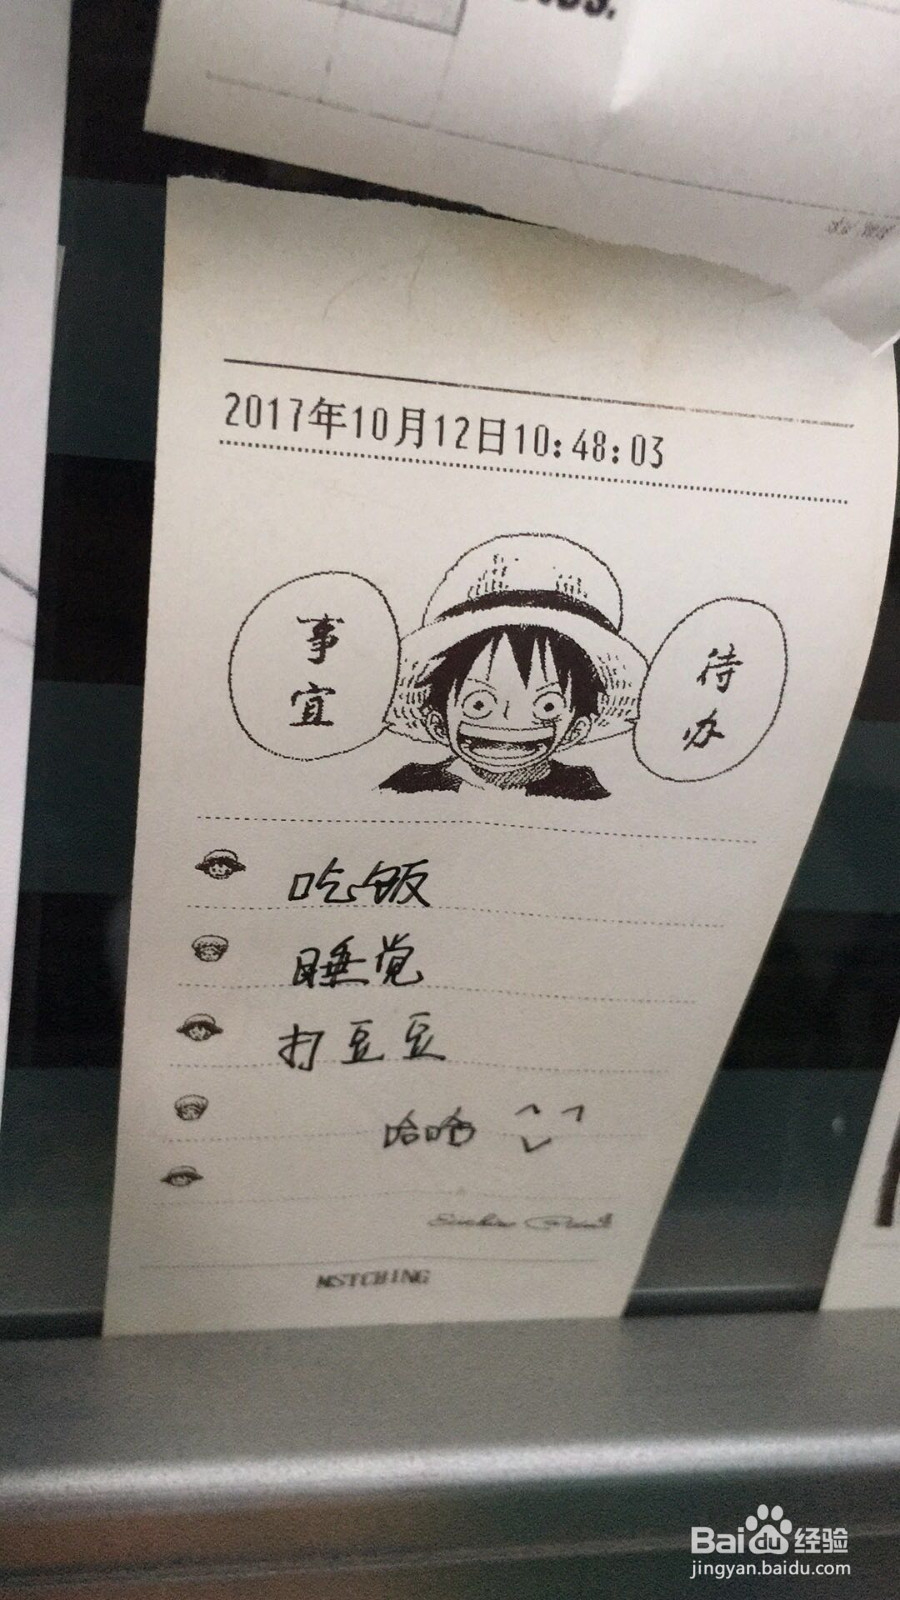 2017年10月12日10:48:03
事宜
待办
吃饭
睡觉
打豆豆
哈哈 ^ ^
MSTCHING
Baidu经验
jingyan.baidu.com